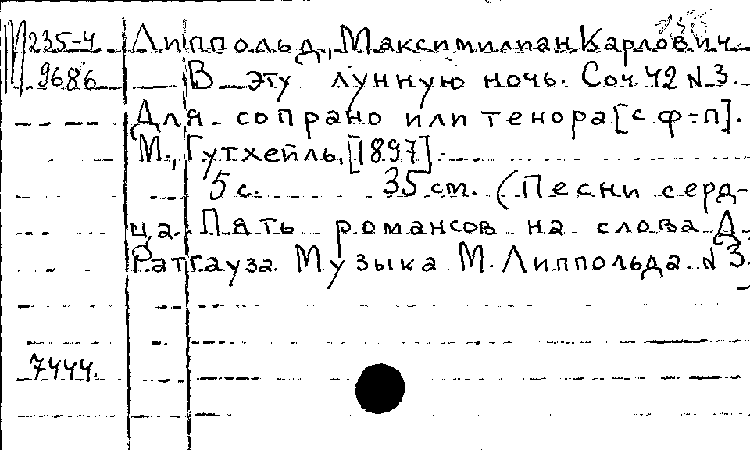 М235-4 Липпольд, Максимилиан Карлович
9686 В эту лунную ночь. Соч 42 N 3.
Для сопрано или тенора [с ф-п].
М., Гутхейль, [1897].
5 с. 35 см. (Песни серд-
ца. Пять романсов на слова Д.
Ратгауза. Музыка М. Липпольда. N 3.
7444.